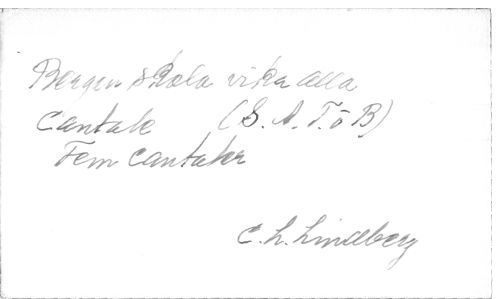 Bergen skola vika alla
Cantate (S. A. T. o B)
Fem Cantater
C. L. Lindberg